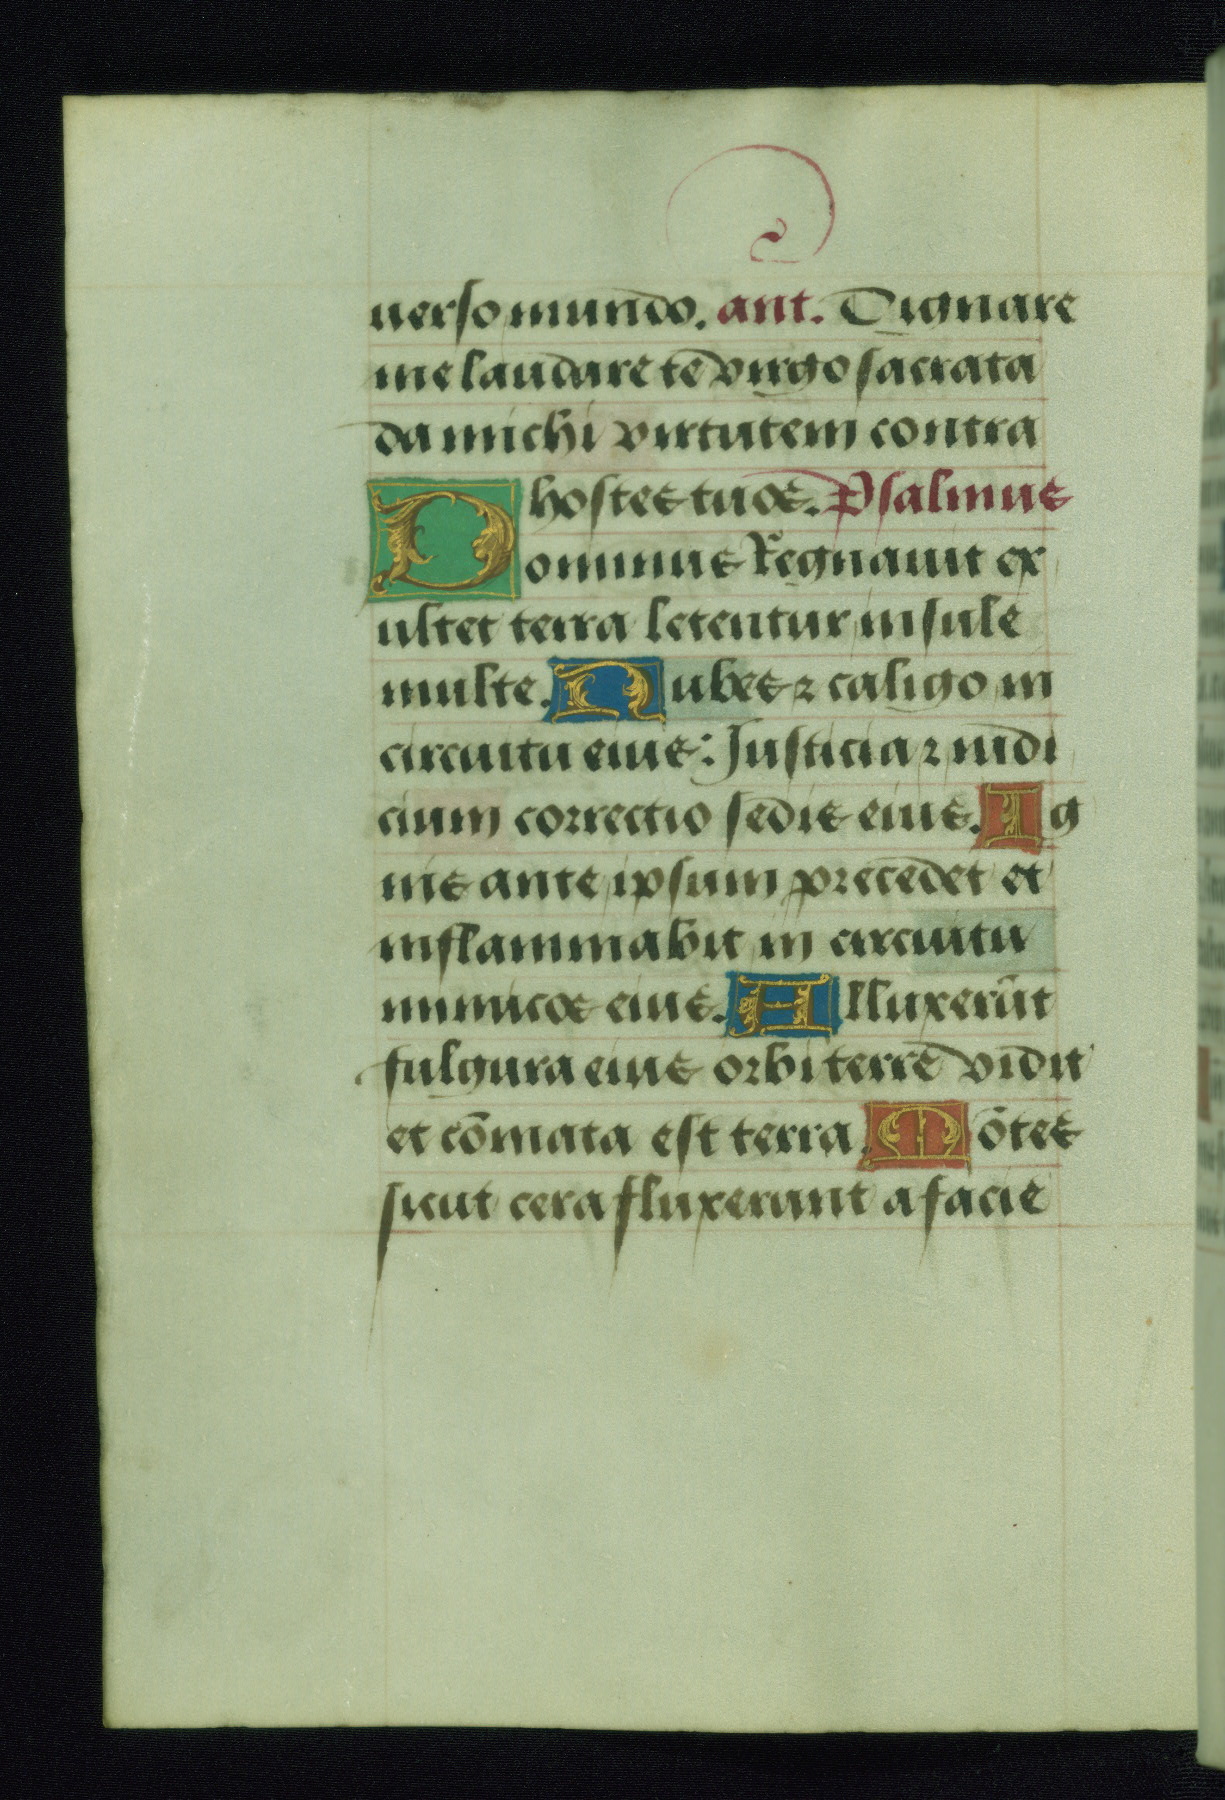 uerso mundo. ant. Dignare
me laudare te virgo sacrata
da michi virtutem contra
hostes tuos. Psalmus
Dominus Regnauit ex
ultet terra letentur insule
multe. Nubes ⁊ caligo in
circuitu eius: Justicia ⁊ iudi
cium correctio sedis eius. Ig
nis ante ipsum precedet et
inflammabit in circuitu
inimicos eius. Alluxerūt
fulgura eius orbi terre vidit
et cōmata est terra. Mōtes
sicut cera fluxerunt a facie